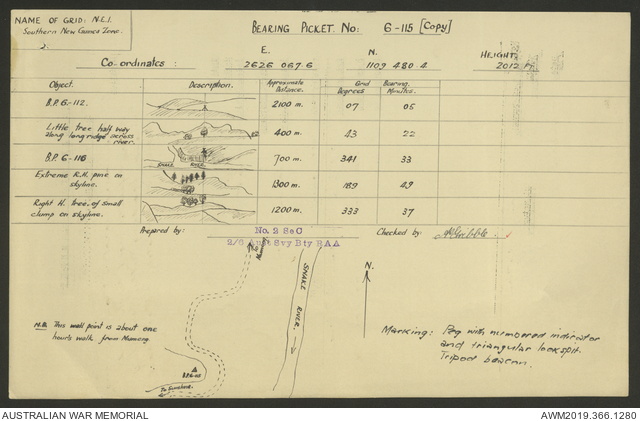 NAME OF GRID: N.E.I.
Southern New Guinea Zone.
2.
BEARING PICKET. No: 6-115 [Copy]
Co-ordinates: E. 2626 067.6 N. 1109 480.4 HEIGHT 2012 Ft.
Object. Description. Approximate Distance. Grid Bearing. Degrees Minutes.
B.P. 6-112. 2100 m. 07 05
Little tree half way along long ridge across river. 400 m. 43 22
B.P. 6-116 SNAKE RIVER 700 m. 341 33
Extreme R.H. pine on skyline. 1300 m. 189 49
Right H. tree of small clump on skyline. 1200 m. 333 37
Prepared by: No. 2 Sec
2/6 Svy Bty RAA
Checked by:
To
SNAKE RIVER.
N.
N.B. This well point is about one
hours walk from Mumeng.
B.P. 6-115
To Sunshine.
Marking: Peg with numbered indicator
and triangular lockspit.
Tripod beacon.
AUSTRALIAN WAR MEMORIAL
AWM2019.366.1280